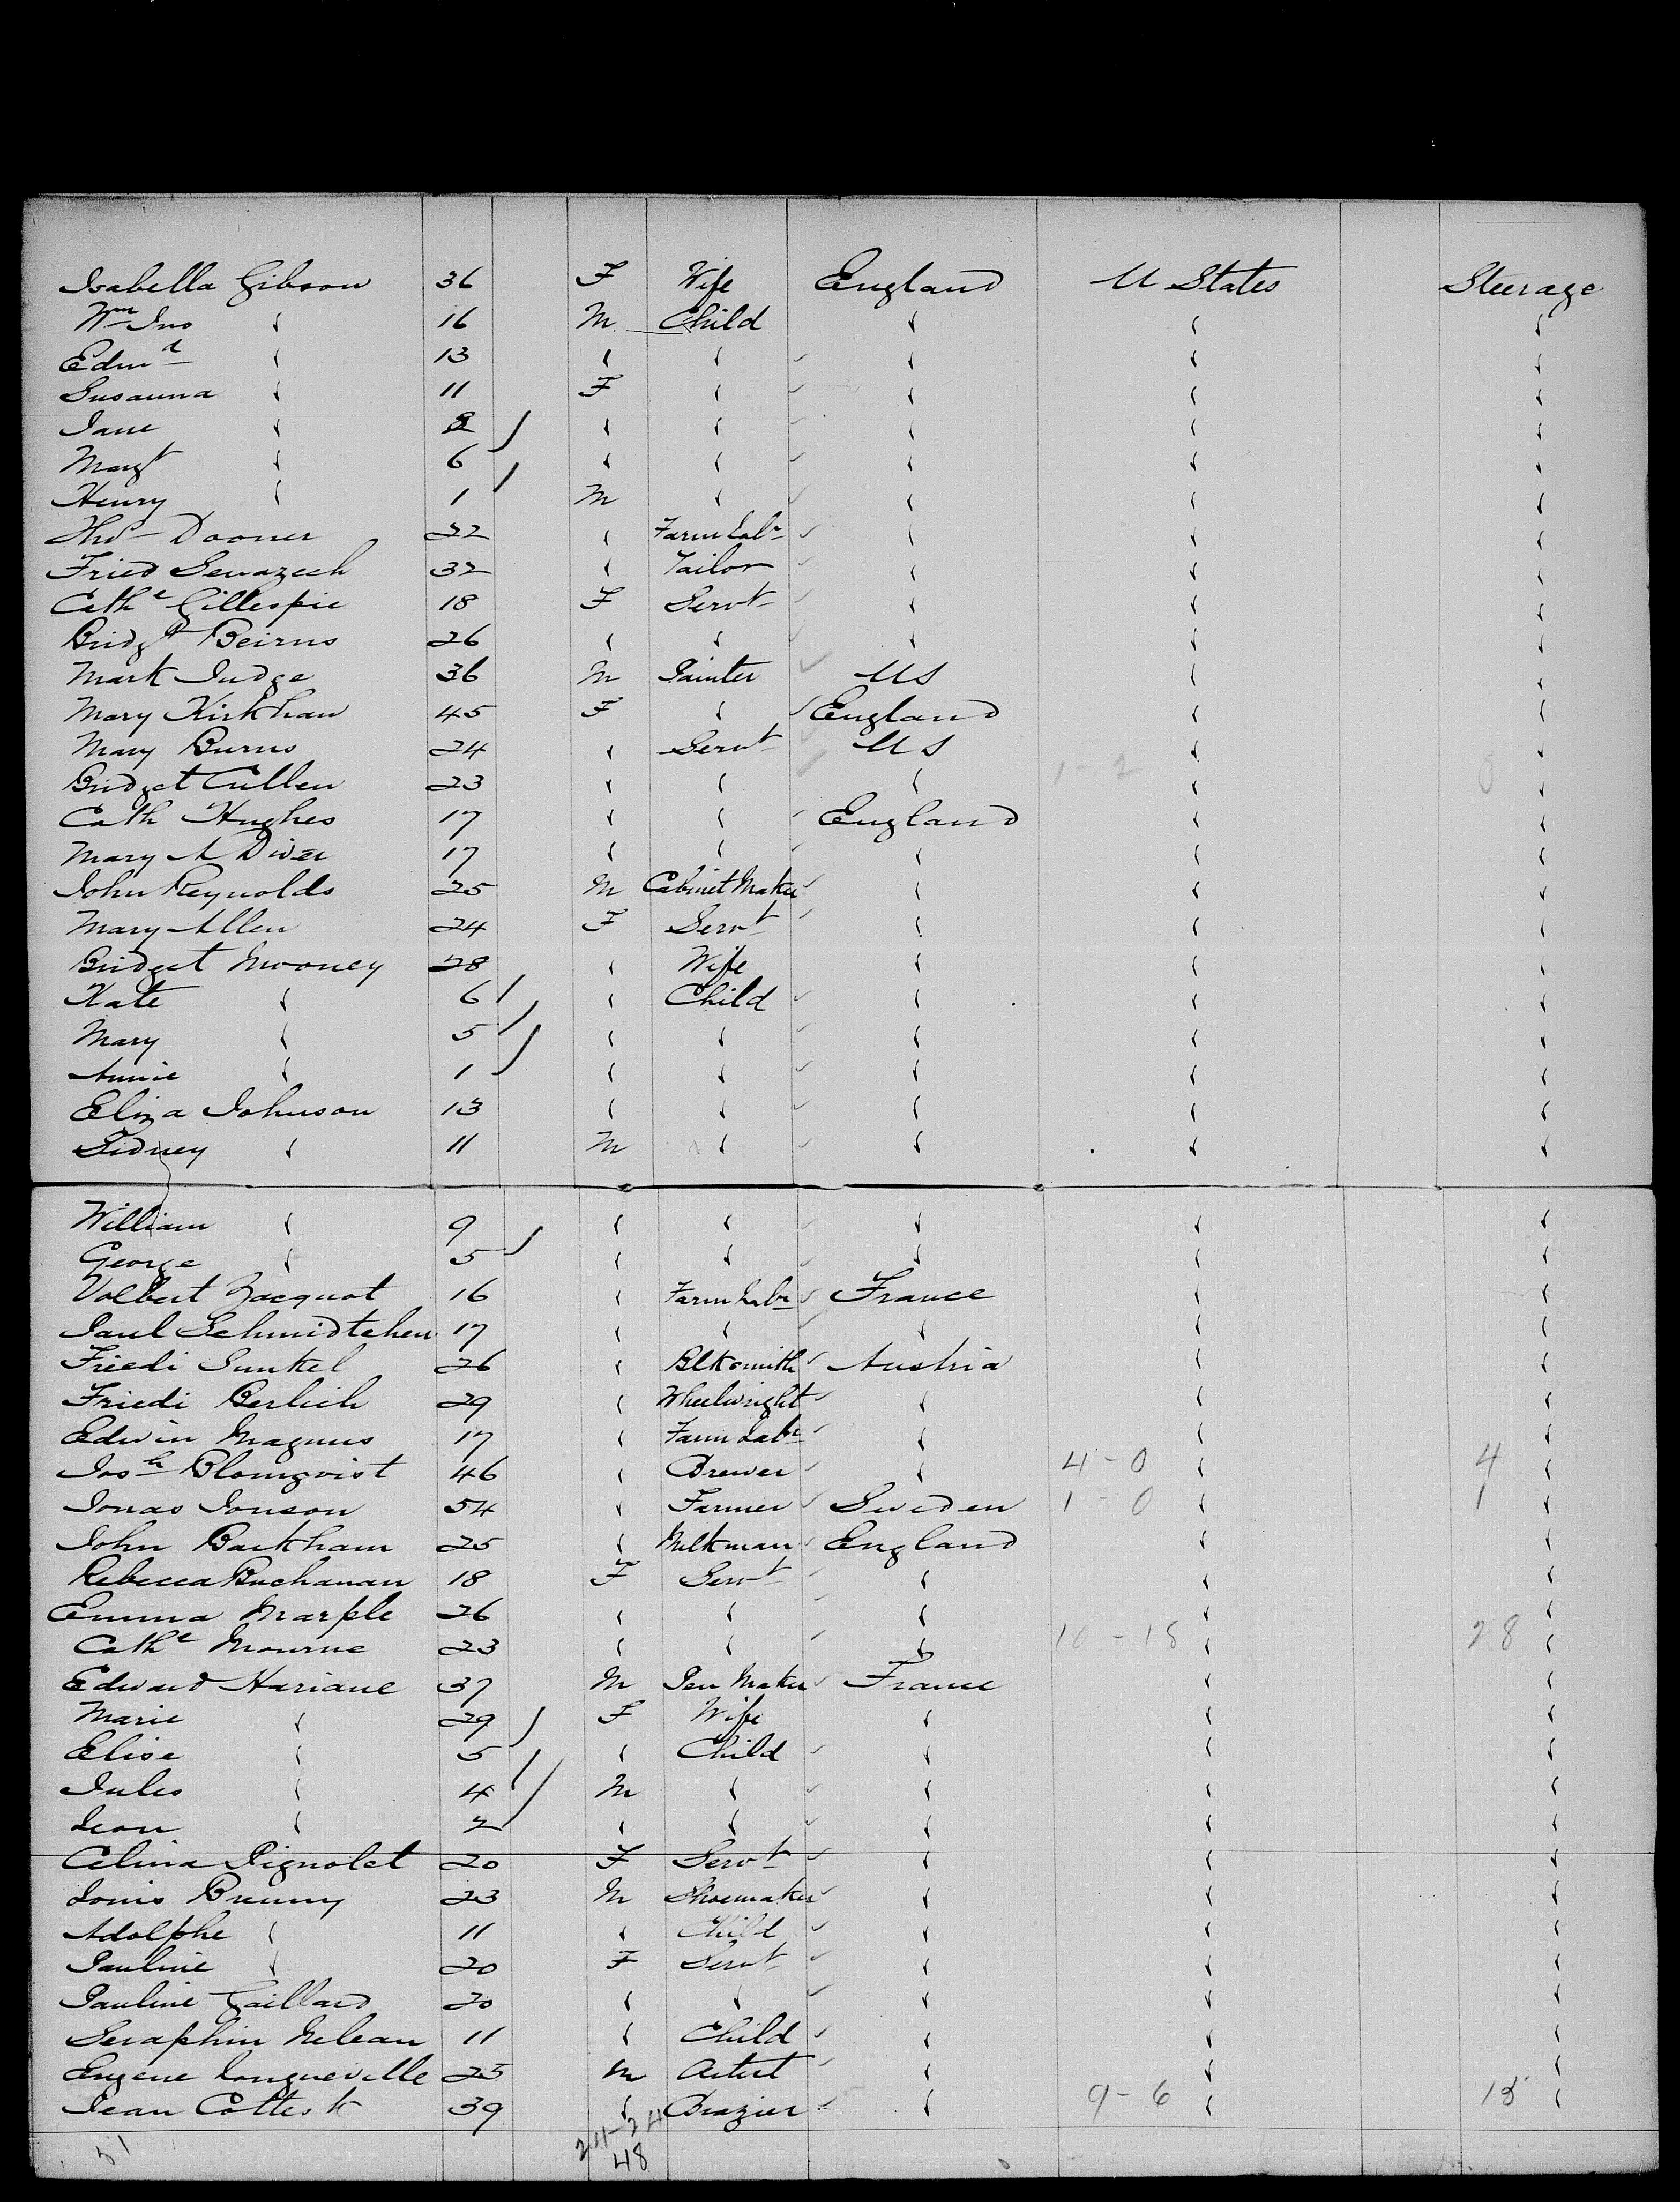 Isabella Gibson 36 F Wife England U States Steerage
Wm Jno " 16 M Child " " "
Edmd " 13 " " " " "
Susanna " 11 F " " " "
Jane " 8 " " " " "
Margt " 6 " " " " "
Henry " 1 M " " " "
Thos Dooner 22 " Farm Labr " " "
Fried 32 " Tailor " " "
Cathe Gillespie 18 F Servt " " "
Bridgt Beirns 26 " " " " "
Mark Judge 36 M Painter US " "
Mary Kirkham 45 F " England " "
Mary Burns 24 " Servt US " "
Bridget Cullen 23 " " " 1-2 " "
Cath Hughes 17 " " England " "
Mary A Diver 17 " " " " "
John Reynolds 25 M Cabinet Maker " " "
Mary Allen 24 F Servt " " "
Bridget Mooney 28 " Wife " " "
Kate " 6 " Child " " "
Mary " 5 " " " " "
Annie " 1 " " " " "
Eliza Johnson 13 " " " " "
Sidney " 11 M " " " "
William " 9 " " " " "
George " 5 " " " " "
Volbert Jacquot 16 " Farm Labr France " "
Paul Schmidtchen 17 " " " " "
Friedi Sunkel 26 " Blksmith Austria " "
Friedi Berlich 29 " Wheelwright " " "
Edwin Magnus 17 " Farm Labr " " "
Josh Blomqvist 46 " Brewer " 4-0 " 4 "
Jonas Jonson 54 " Farmer Sweden 1-0 " 1 "
John Barkham 25 " Milkman England " "
Rebecca Buchanan 18 F Servt " " "
Emma Marple 26 " " " " "
Cathe Mourne 23 " " " 10-18 " 28 "
Edward Hariane 37 M Pen Maker France " "
Marie " 29 F Wife " " "
Elise " 5 " Child " " "
Jules " 4 M " " " "
Leon " 2 " " " " "
Celina Pignolet 20 F Servt " " "
Louis Brenny 23 M Shoemaker " " "
Adolphe " 11 " Child " " "
Pauline " 20 F Servt " " "
Pauline Gaillard 20 " " " " "
Seraphin 11 " Child " " "
Eugene Longueville 25 M Artist " " "
Jean 39 " Brazier " 9-6 " 15 "
51 24-24
48